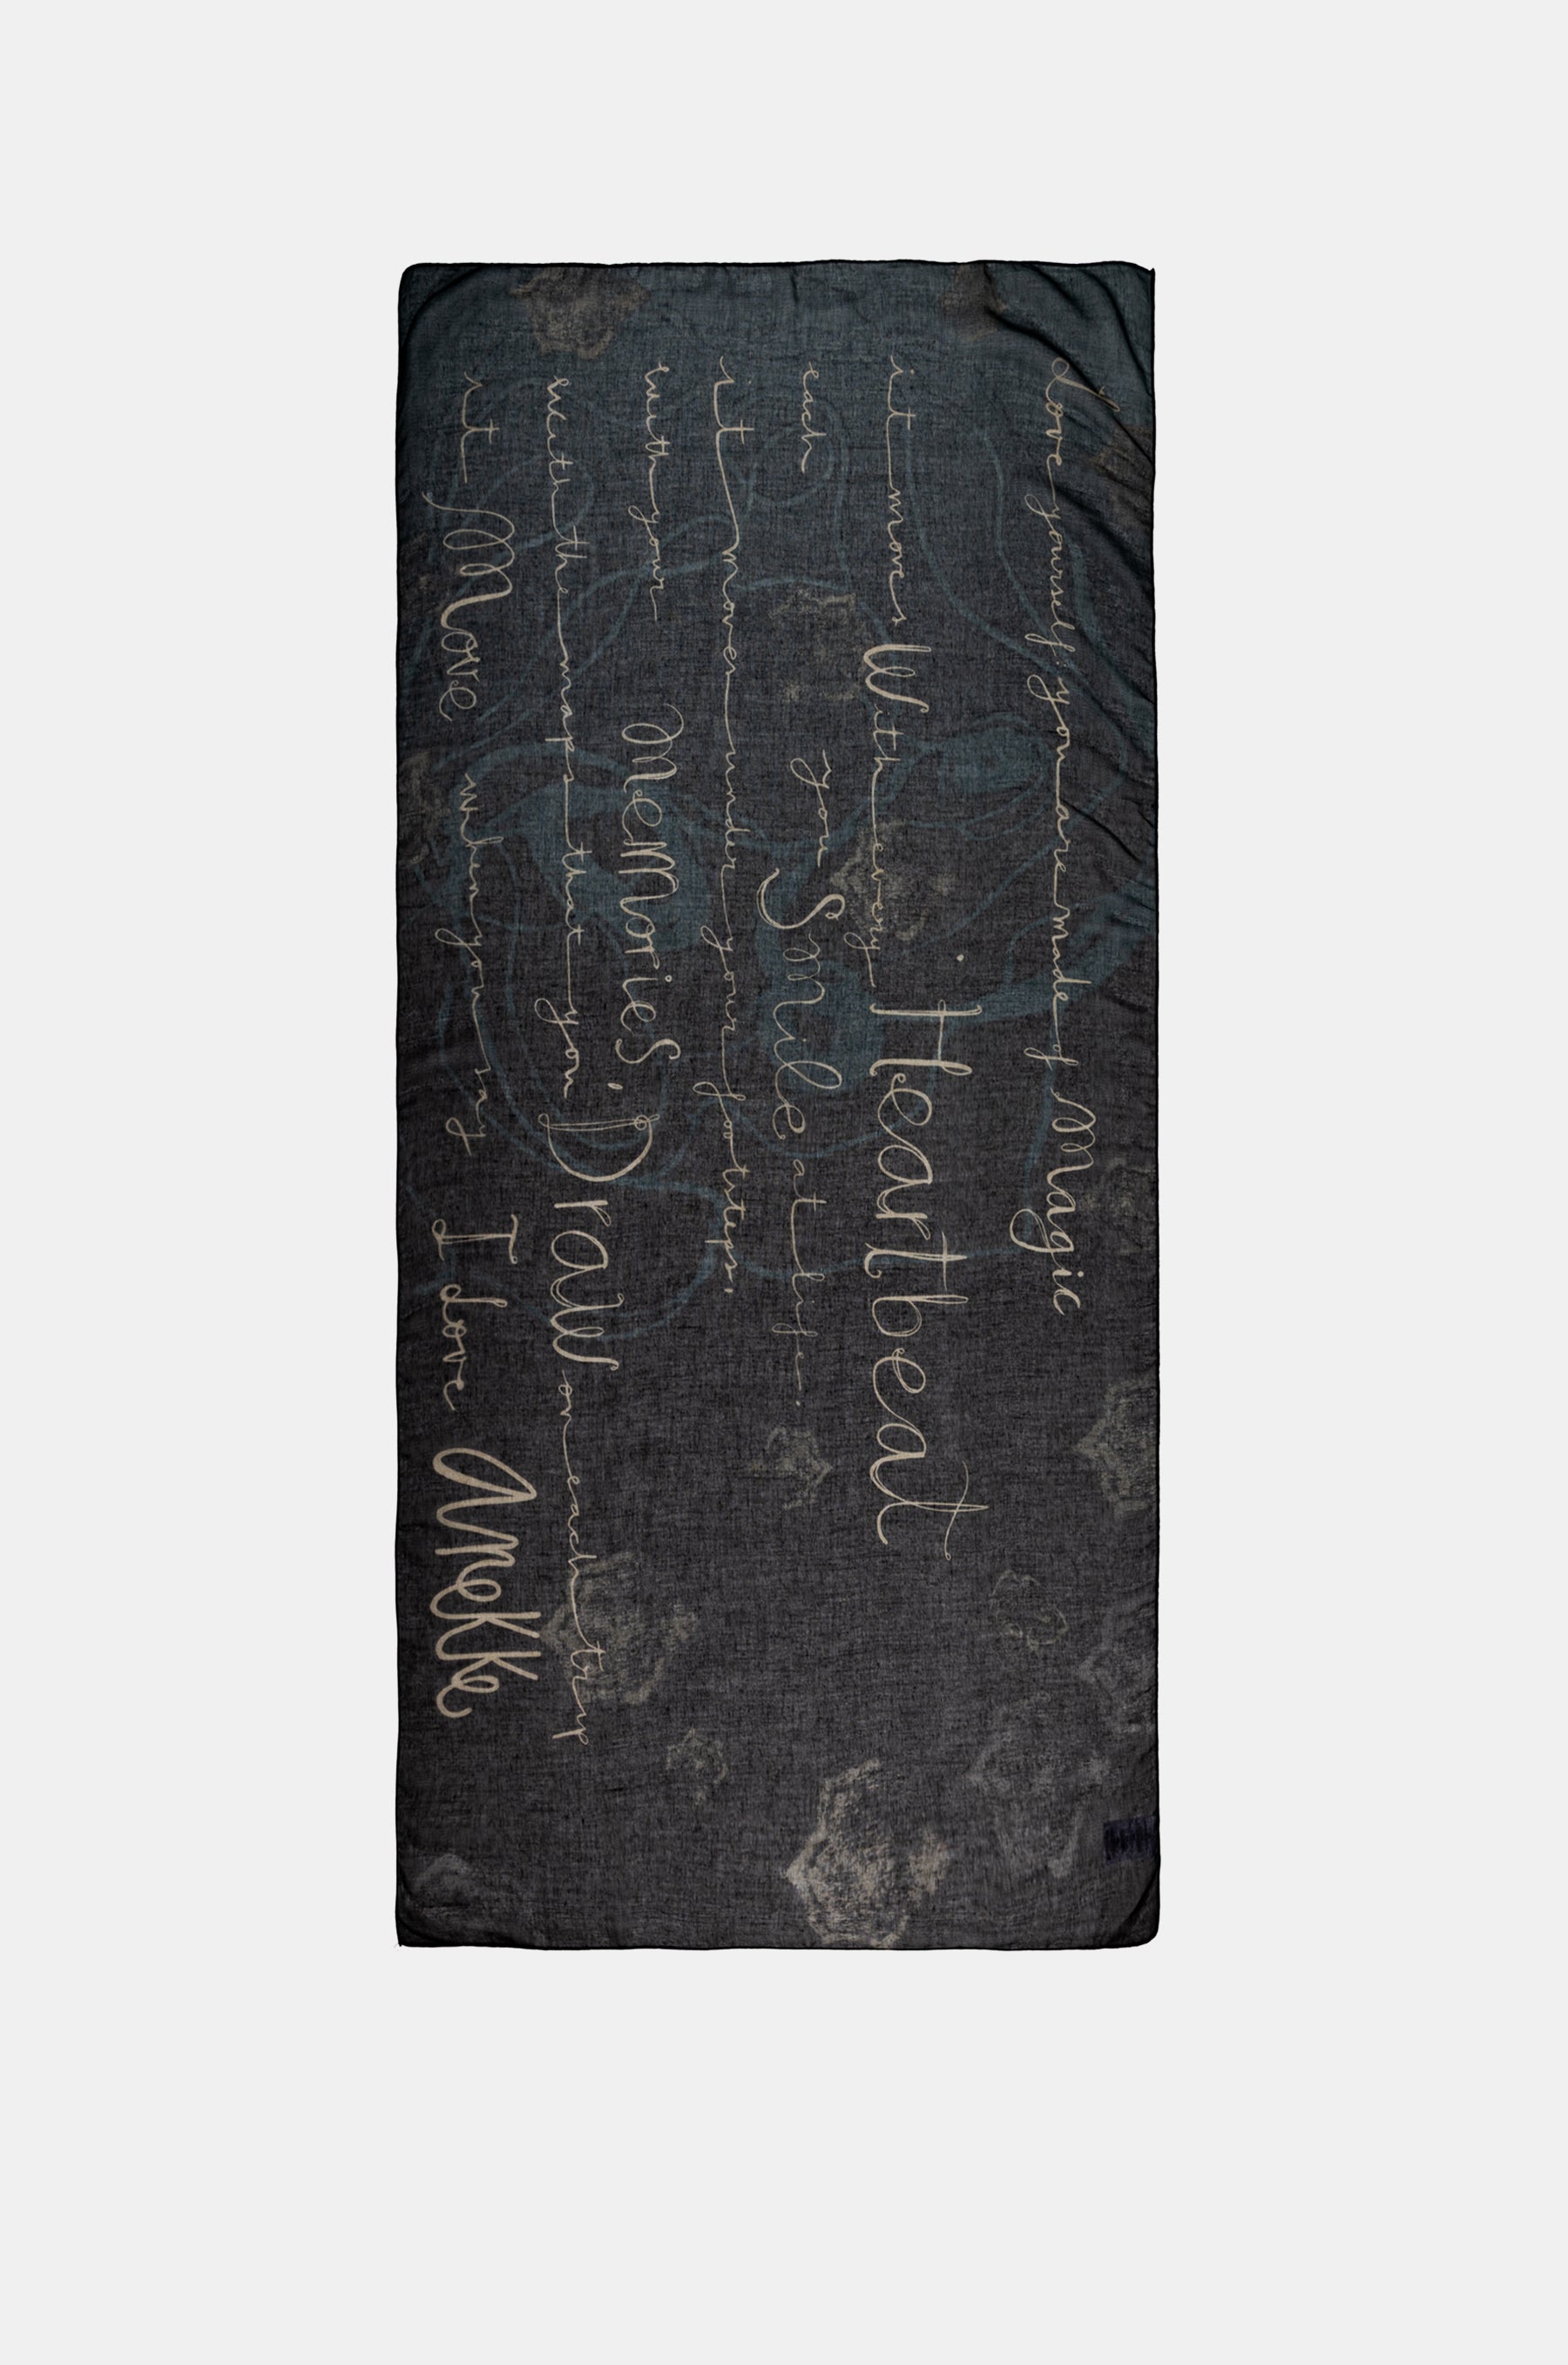 Love yourself: you are made of Magic
it moves With every Heartbeat
each you Smile at life.
it moves under your footsteps,
with your Memories,
with the maps that you Draw on each trip
it Move when you say I Love Anekke